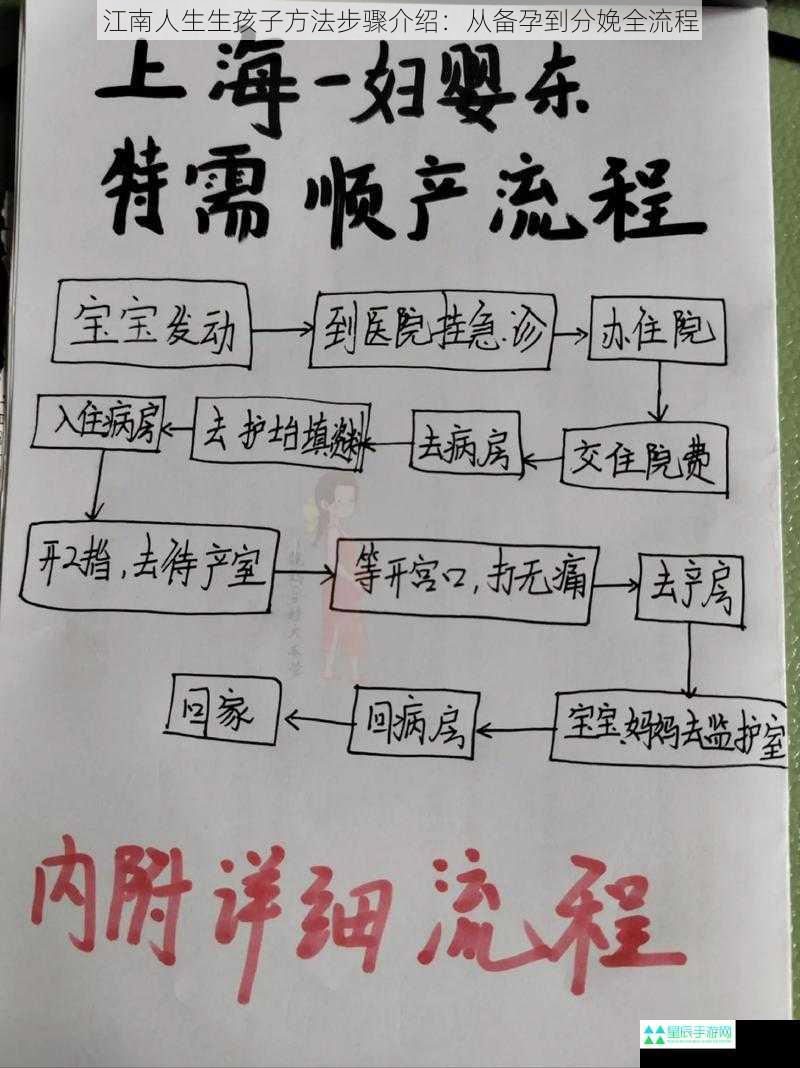 江南人生生孩子方法步骤介绍：从备孕到分娩全流程
上海一妇婴东
特需 顺产流程
宝宝发动
到医院挂急诊
办住院
交住院费
去病房
去护士台填资料
入住病房
开2指，去待产室
等开宫口，打无痛
去产房
宝宝、妈妈去监护室
回病房
回家
内附详细流程
星辰手游网